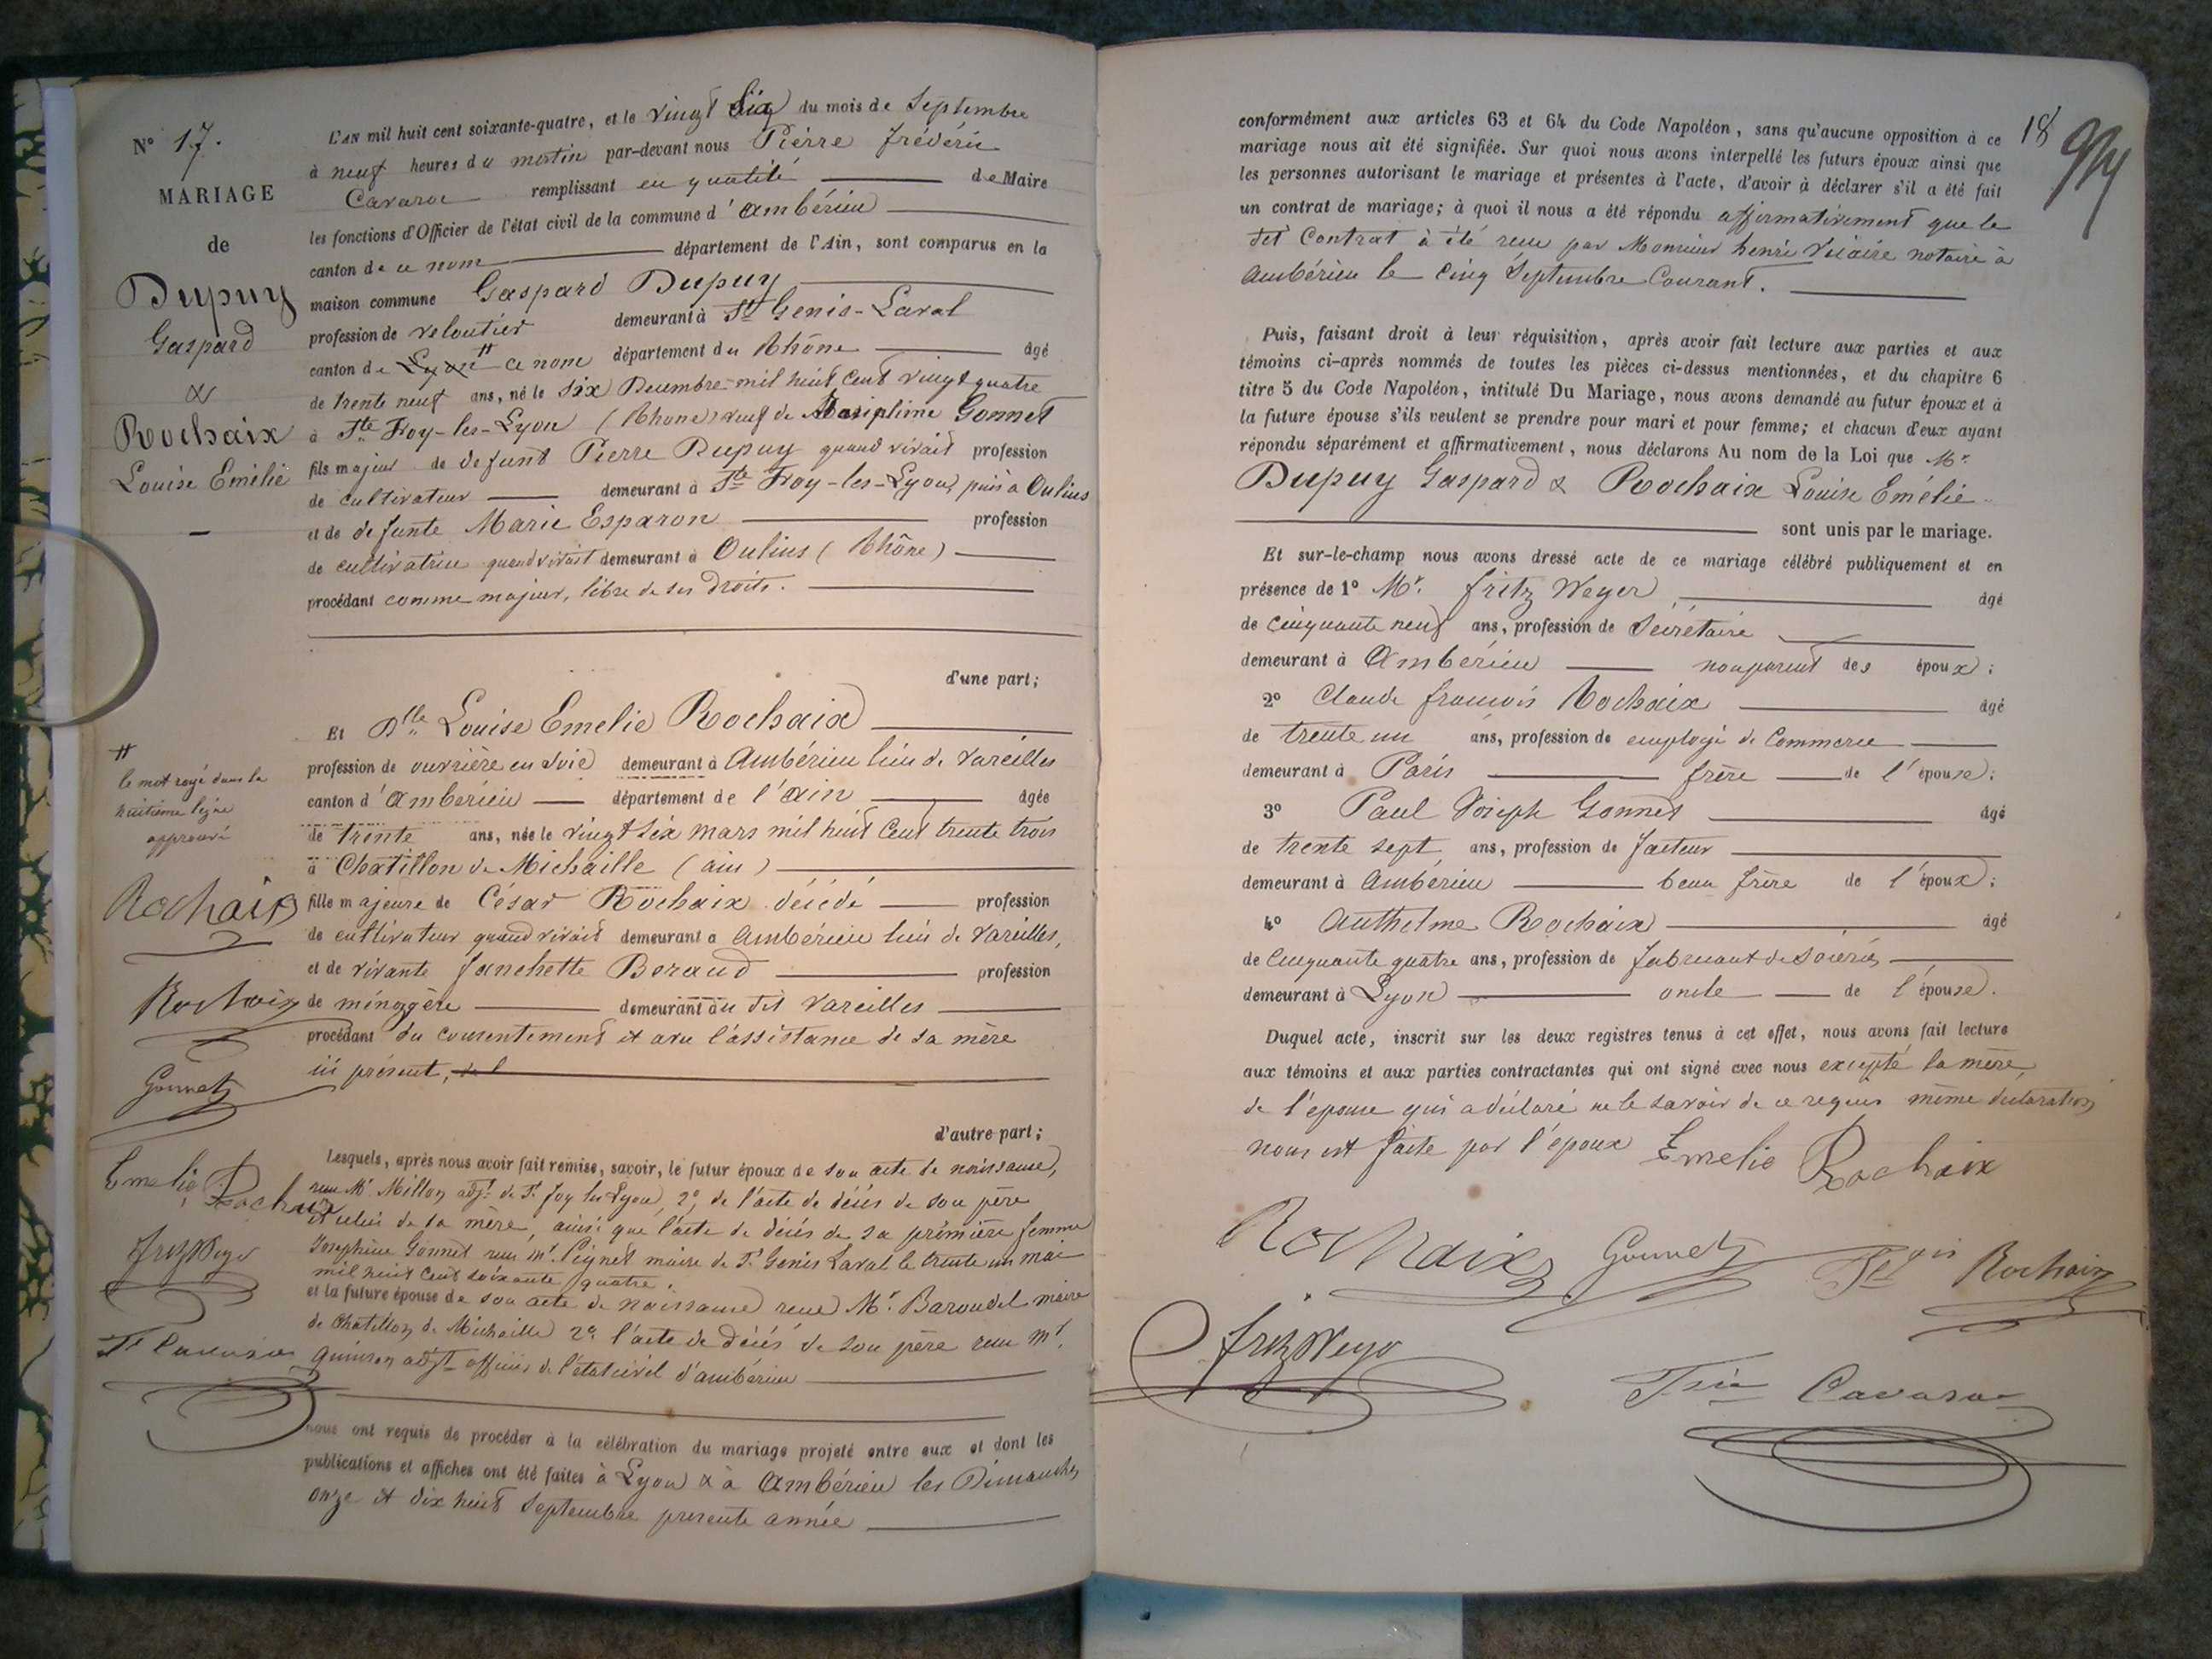 N° 17.
MARIAGE
de
Dupuy
Gaspard
&
Rochaix
Louise Emélie
L'AN mil huit cent soixante-quatre, et le vingt Six du mois de Septembre
à neuf heures du matin par-devant nous Pierre frédéric
Cavaroc remplissant en qualité de Maire
les fonctions d'Officier de l'état civil de la commune d'Ambérieu
canton de ce nom département de l'Ain, sont comparus en la
maison commune Gaspard Dupuy
profession de veloutier demeurant à St Genis-Laval
canton de Lyon # ce nom département du Rhône âgé
de trente neuf ans, né le six Decembre mil huit cent vingt quatre
à Ste Foy-les-Lyon (Rhone) veuf de Josephine Gonnet
fils majeur de defunt Pierre Dupuy quand vivait profession
de cultivateur demeurant à Ste Foy-les-Lyon, puis à Oulins
et de defunte Marie Esparon profession
de cultivatrice quand vivait demeurant à Oulins (Rhône)
procédant comme majeur, libre de ses droits.
d'une part;
Et Dlle Louise Emelie Rochaix
profession de ouvrière en soie demeurant à Ambérieu lieu de Vareilles
canton d'Ambérieu département de l'Ain âgée
de trente ans, née le vingt six mars mil huit cent trente trois
à Chatillon de Michaille (ain)
fille majeure de César Rochaix décédé profession
de cultivateur quand vivait demeurant a Ambérieu lieu de Vareilles,
et de vivante Fanchette Beraud profession
de ménagère demeurant au dit Vareilles
procédant du consentement et avec l'assistance de sa mère
ici présent,
d'autre part;
#
le mot rayé dans la
huitième ligne
approuvé
Rochaix
Rochaix
Gonnet
Emelie Rochaix
Fritz Weyer
Fc Cavaroc
Lesquels, après nous avoir fait remise, savoir, le futur époux de son acte de naissance,
reçu Mr Millon adjt de St foy les Lyon, 2°, de l'acte de décès de son père
et celui de sa mère, ainsi que l'acte de décès de sa première femme
Josephine Gonnet reçu mr Peignet maire de St Genis Laval le trente un mai
mil huit cent soixante quatre.
et la future épouse de son acte de naissance reçue Mr Baroudel maire
de Chatillon de Michaille 2° l'acte de décès de son père reçu Mr.
Guinson adjt officier de l'état civil d'ambérieu
nous ont requis de procéder à la célébration du mariage projeté entre eux et dont les
publications et affiches ont été faites à Lyon & à Ambérieu les Dimanches
onze et dix huit Septembre presente année
18
conformément aux articles 63 et 64 du Code Napoléon, sans qu'aucune opposition à ce
mariage nous ait été signifiée. Sur quoi nous avons interpellé les futurs époux ainsi que
les personnes autorisant le mariage et présentes à l'acte, d'avoir à déclarer s'il a été fait
un contrat de mariage; à quoi il nous a été répondu affirmativement que le
dit Contrat à été reçu par Monsieur henri Vicaire notaire à
Ambérieu le Cinq Septembre Courant.
Puis, faisant droit à leur réquisition, après avoir fait lecture aux parties et aux
témoins ci-après nommés de toutes les pièces ci-dessus mentionnées, et du chapitre 6
titre 5 du Code Napoléon, intitulé Du Mariage, nous avons demandé au futur époux et à
la future épouse s'ils veulent se prendre pour mari et pour femme; et chacun d'eux ayant
répondu séparément et affirmativement, nous déclarons Au nom de la Loi que Mr
Dupuy Gaspard & Rochaix Louise Emélie
sont unis par le mariage.
Et sur-le-champ nous avons dressé acte de ce mariage célébré publiquement et en
présence de 1° Mr. fritz Weyer âgé
de cinquante neuf ans, profession de Sécrétaire
demeurant à Ambérieu non parent des époux;
2° Claude françois Rochaix âgé
de trente un ans, profession de employé de Commerce
demeurant à Paris frère de l'épouse;
3° Paul Joseph Gonnet âgé
de trente sept ans, profession de facteur
demeurant à Ambérieu beau frère de l'époux;
4° Anthelme Rochaix âgé
de Cinquante quatre ans, profession de fabricant de Soieries
demeurant à Lyon oncle de l'épouse.
Duquel acte, inscrit sur les deux registres tenus à cet effet, nous avons fait lecture
aux témoins et aux parties contractantes qui ont signé avec nous excepté la mère
de l'epouse qui a déclaré ne le savoir de ce requis même declaration
nous est faite par l'epoux Emelie Rochaix
Rochaix Gonnet Fçois Rochaix
Fritz Weyer
Fric Cavaroc